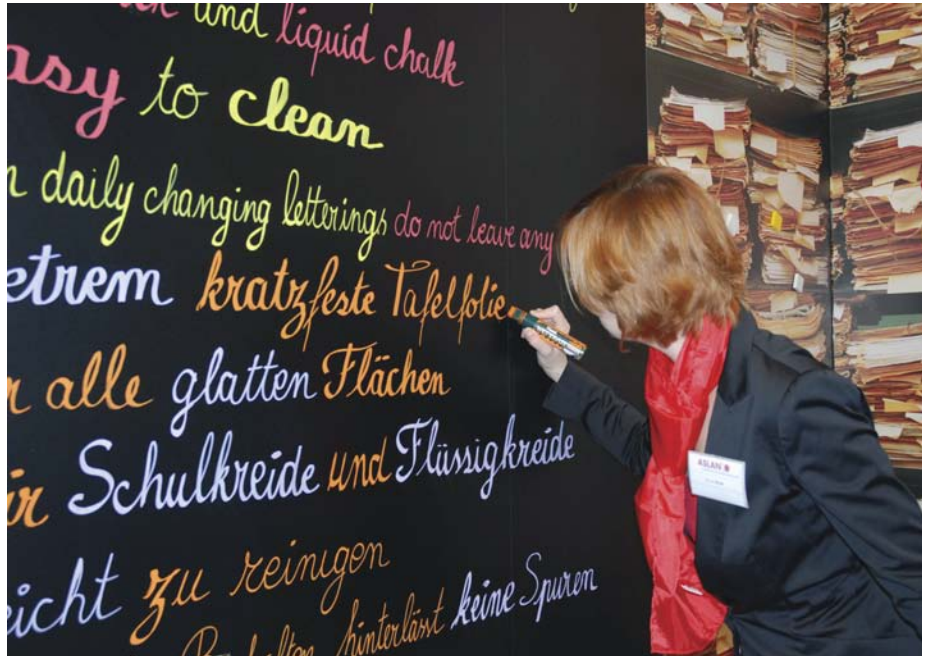 and liquid chalk
asy to clean
n daily changing letterings do not leave any
etrem kratzfeste Tafelfolie
r alle glatten Flächen
ür Schulkreide und Flüssigkreide
eicht zu reinigen
hinterlässt keine Spuren
ASLAN